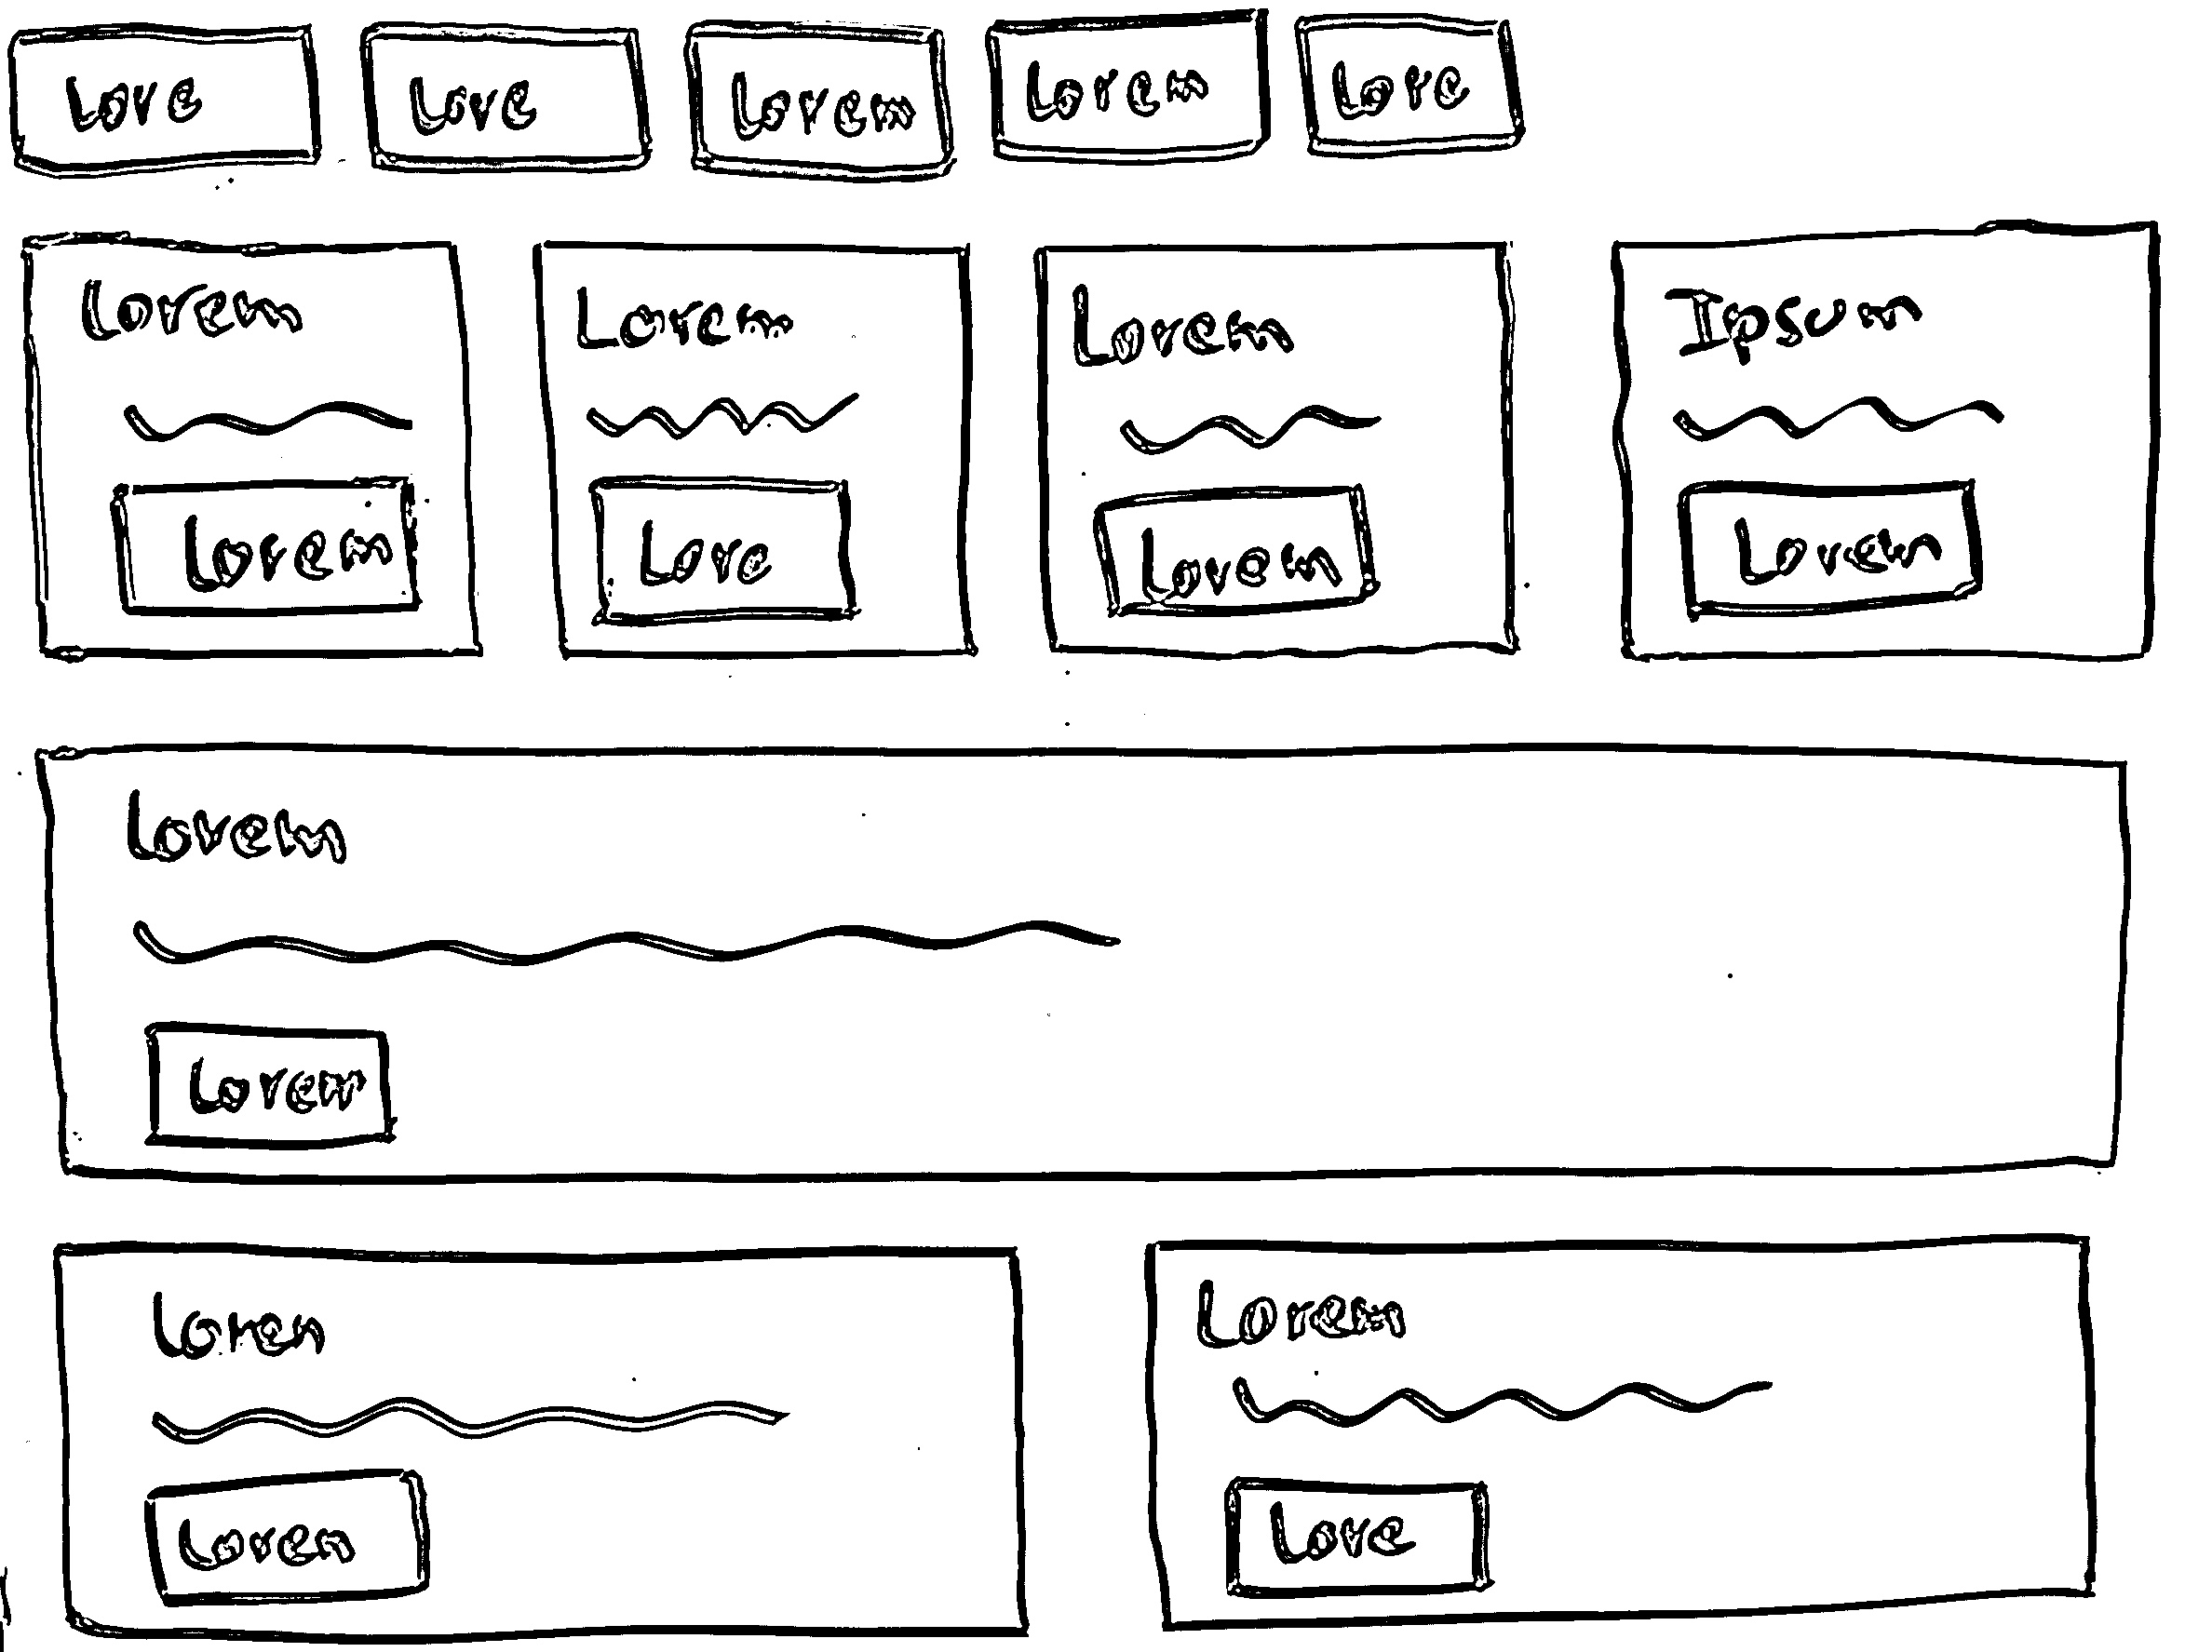 Love Love Lorem Lorem Lore
Lorem Lorem Lorem Ipsum
Lorem Lore Lorem Lorem
Lorem
Lorem
Loren Lorem
Loren Love